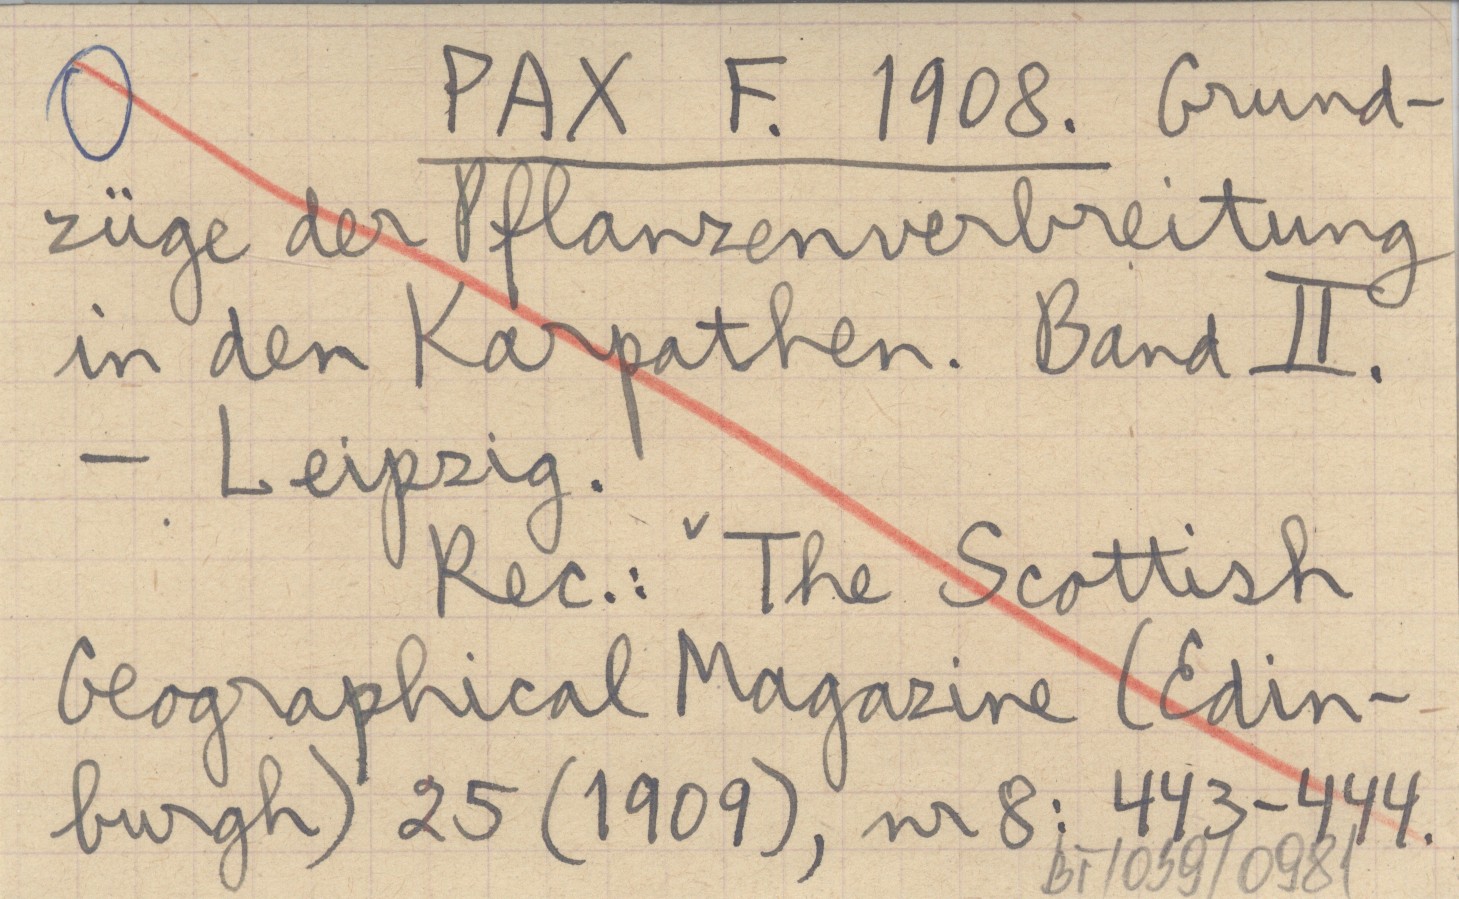 PAX F. 1908. Grund-
züge der Pflanzenverbreitung
in den Karpathen. Band II.
— Leipzig.
Rec.: ˇThe Scottish
Geographical Magazine (Edin-
burgh) 25 (1909), nr 8: 443-444.
BT/059/0981